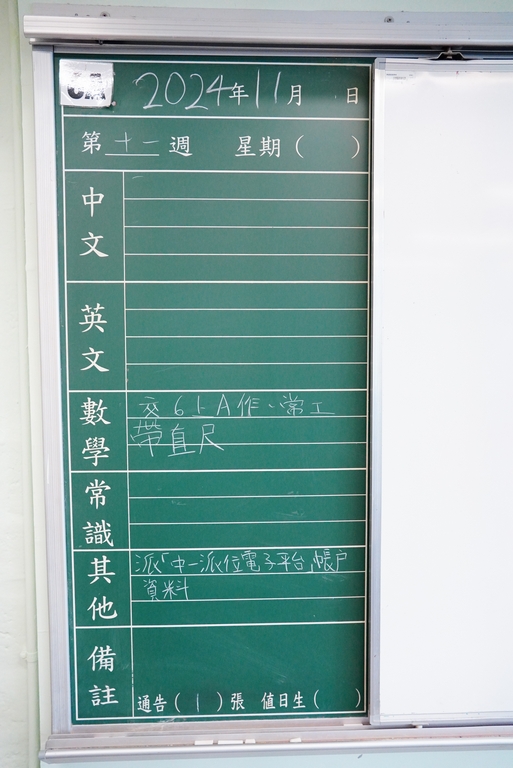 6A
2024年11月 日
第十一週 星期( )
中文
英文
數學
交6上A作、常工
帶直尺
常識
其他
派「中一派位電子平台」帳户
資料
備註
通告(1)張 值日生( )